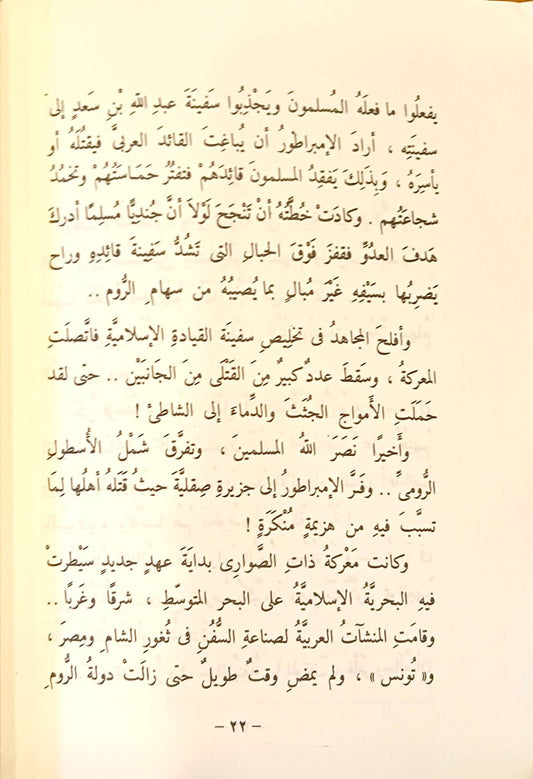 يفعلُوا ما فعلَهُ المُسلمونَ ويَجْذِبُوا سَفينَةَ عبدِ اللهِ بْنِ سَعدٍ إلىَ
سفينَتِه ، أرادَ الإمبراطورُ أن يُباغِتَ القائدَ العربىَّ فيقتُلَهُ أو
يأسرَهُ ، وَبِذلكَ يَفقِدُ المسلمونَ قائِدَهُمْ فتفتُرُ حمَاسَتُهُمْ وتخمُدُ
شجاعَتُهم . وكادَتْ خُطَّتُهُ أنْ تَنْجَحَ لَوْلاَ أنَّ جُنديًّا مُسلِمًا أدركَ
هَدفَ العدُوِّ فقفزَ فَوْقَ الحبالِ التى تَشُدُّ سَفينةَ قائِدِهِ وراح
يَضرِبُها بسَيْفِهِ غَيْرَ مُبالٍ بما يُصيبُهُ من سهامِ الرُّوم ..
وأفلحَ المجاهدُ فى تخلِيصِ سفينَةِ القيادةِ الإسلاميَّةِ فاتَّصلَتِ
المعركةُ ، وسقطَ عددٌ كبيرٌ مِنَ القَتْلَى مِنَ الجَانبَيْنِ .. حتى لقد
حَمَلَتِ الأَمواج الجُثَثَ والدِّماءَ إلى الشاطئ !
وأَخيرًا نَصَرَ اللهُ المسلمينَ ، وتفرَّقَ شَمْلُ الأُسطولِ
الرُّومىِّ .. وفَرَّ الإمبراطورُ إلى جزيرةِ صِقليَّةَ حيثُ قتَلَهُ أهلُها لِمَا
تسبَّبَ فيهِ من هزيمةٍ مُنْكَرَةٍ !
وكانت مَعْركةُ ذاتِ الصَّوارِى بدايَةَ عهدٍ جديدٍ سَيْطرتْ
فيهِ البحريَّةُ الإسلاميةُ على البحرِ المتوسِّطِ ، شرقًا وغَربًا ..
وقامَتِ المنشآتُ العربيَّةُ لصناعةِ السُّفُنِ فى ثُغورِ الشامِ ومِصرَ ،
و« تُونس » ، ولم يمضِ وقتٌ طويلٌ حتى زالَتْ دولةُ الرُّومِ
– ٢٢ –